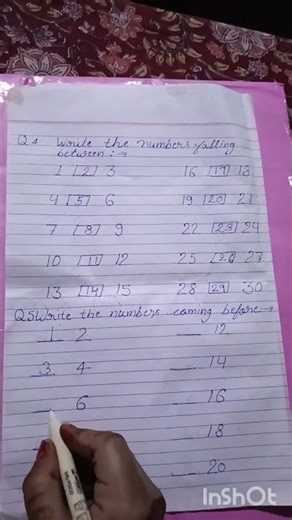 Q4 Write the numbers falling
between :→
1 [2] 3 16 [17] 18
4 [5] 6 19 [20] 21
7 [8] 9 22 [23] 24
10 [11] 12 25 [26] 27
13 [14] 15 28 [29] 30
Q5 Write the numbers coming before→
1 2 __ 12
3 4 __ 14
__ 6 __ 16
__ 18
__ 20
InShot